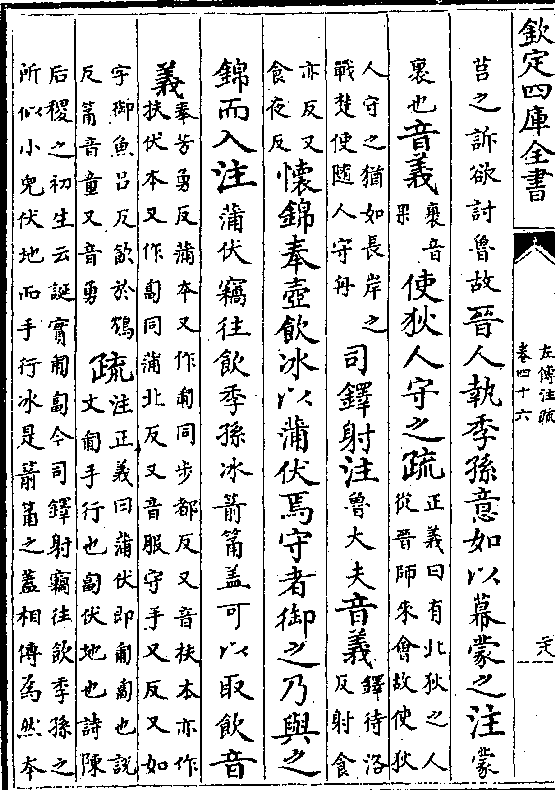 欽定四庫全書
左傳注疏
卷四十六
莒之訴欲討魯故晉人執季孫意如以幕蒙之注蒙
裹也音義裹音果使狄人守之疏正義曰有北狄之人從晉師來會故使狄
人守之猶如長岸之戰楚使隨人守舟司鐸射注魯大夫音義鐸待洛反射食
亦反又食夜反懷錦奉壺飲冰以蒲伏焉守者御之乃與之
錦而入注蒲伏竊往飲季孫冰箭筩蓋可以取飲音
義奉芳勇反蒲本又作匍同步都反又音扶本亦作扶伏本又作匐同蒲北反又音服守手又反又如
字御魚呂反飲於鴆反筩音童又音勇疏注正義曰蒲伏即匍匐也說文匍手行也匐伏地也詩陳
后稷之初生云誕實匍匐今司鐸射竊往飲季孫之
所似小兒伏地而手行冰是箭筩之蓋相傳為然本